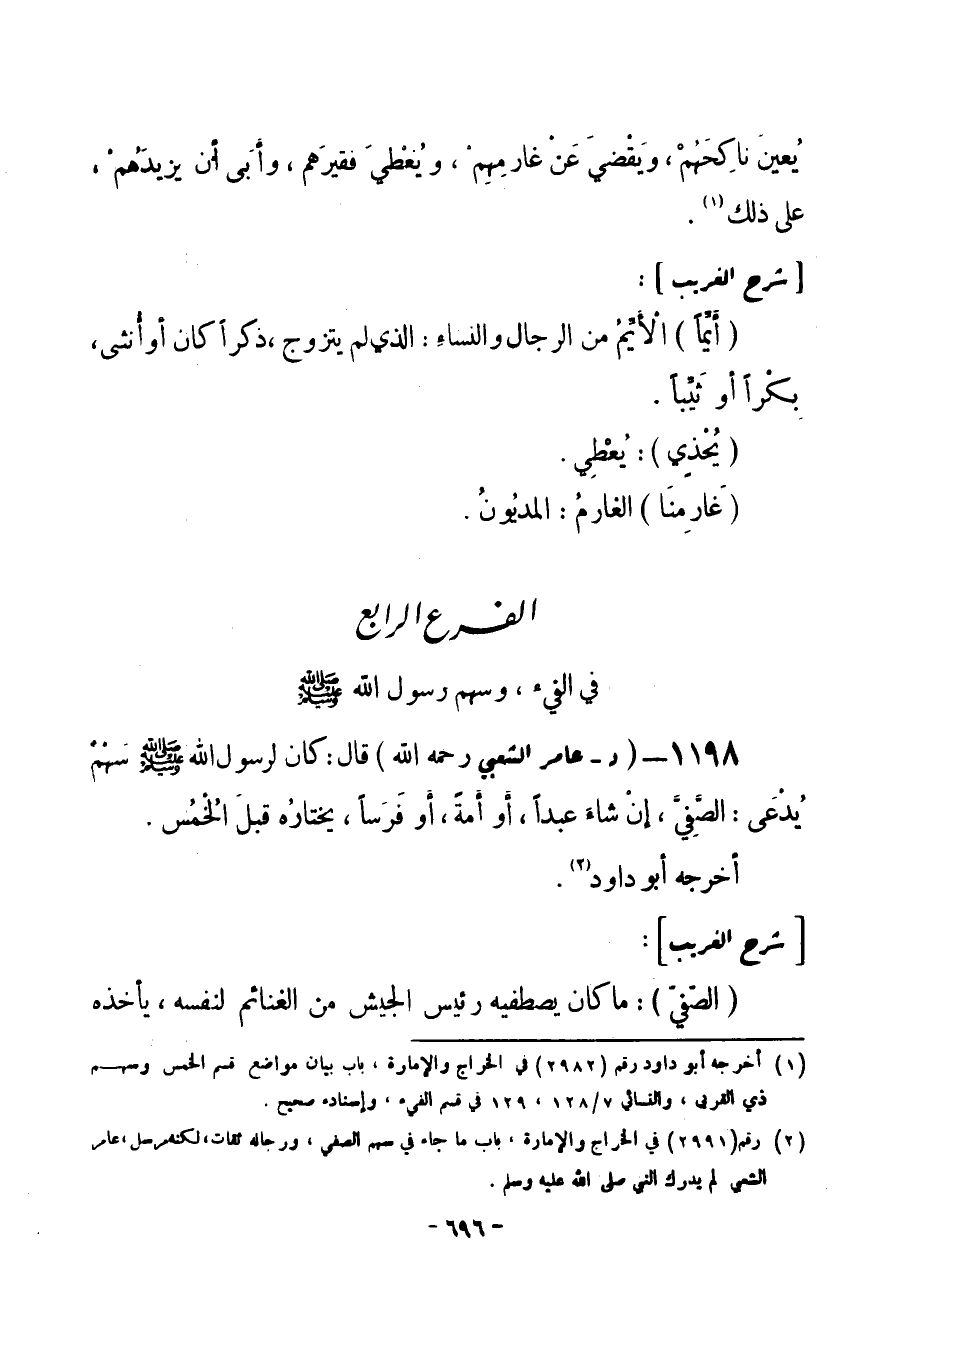 يُعينَ ناكِحَهُمْ ، ويَقْضيَ عَنْ غارِمِهِمْ ، ويُعْطيَ فقيرَهم ، وأَبى أن يزيدَهُمْ ،
على ذلك (١) .
[ شرح الغريب ] :
( أَيِّماً ) الأَيِّمُ من الرجال والنساءِ : الذي لم يتزوج ، ذكراً كان أو أُنثى ،
بِكْراً أو ثَيِّباً .
( يُحْذي ) : يُعْطِي .
( غَارِمنَا ) الغارمُ : المديُونُ .
الفرع الرابع
في الفيء ، وسهم رسول الله ﷺ
١١٩٨ – ( د - عامر الشعبي رحمه الله ) قال : كان لرسول الله ﷺ سَهْمٌ
يُدْعَى : الصَّفِيَّ ، إنْ شاءَ عبداً ، أو أَمةً ، أو فَرَساً ، يختارُه قبلَ الْخُمُس .
أخرجه أبو داود (٢) .
[ شرح الغريب ] :
( الصّفيّ ) : ما كان يصطفيه رئيس الجيش من الغنائم لنفسه ، يأخذه
(١) أخرجه أبو داود رقم (٢٩٨٢) في الخراج والإمارة ، باب بيان مواضع قسم الخمس وسهم
ذي القربى ، والنسائي ١٢٨/٧ ، ١٢٩ في قسم الفيء ، وإسناده صحيح .
(٢) رقم (٢٩٩١) في الخراج والإمارة ، باب ما جاء في سهم الصفي ، ورجاله ثقات ، لكنه مرسل ، عامر
الشعبي لم يدرك النبي صلى الله عليه وسلم .
- ٦٩٦ -